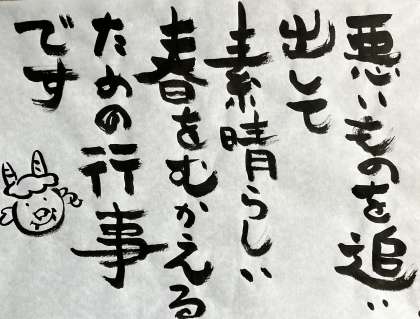 悪いものを追い
出して
素晴らしい
春をむかえる
ための行事
です